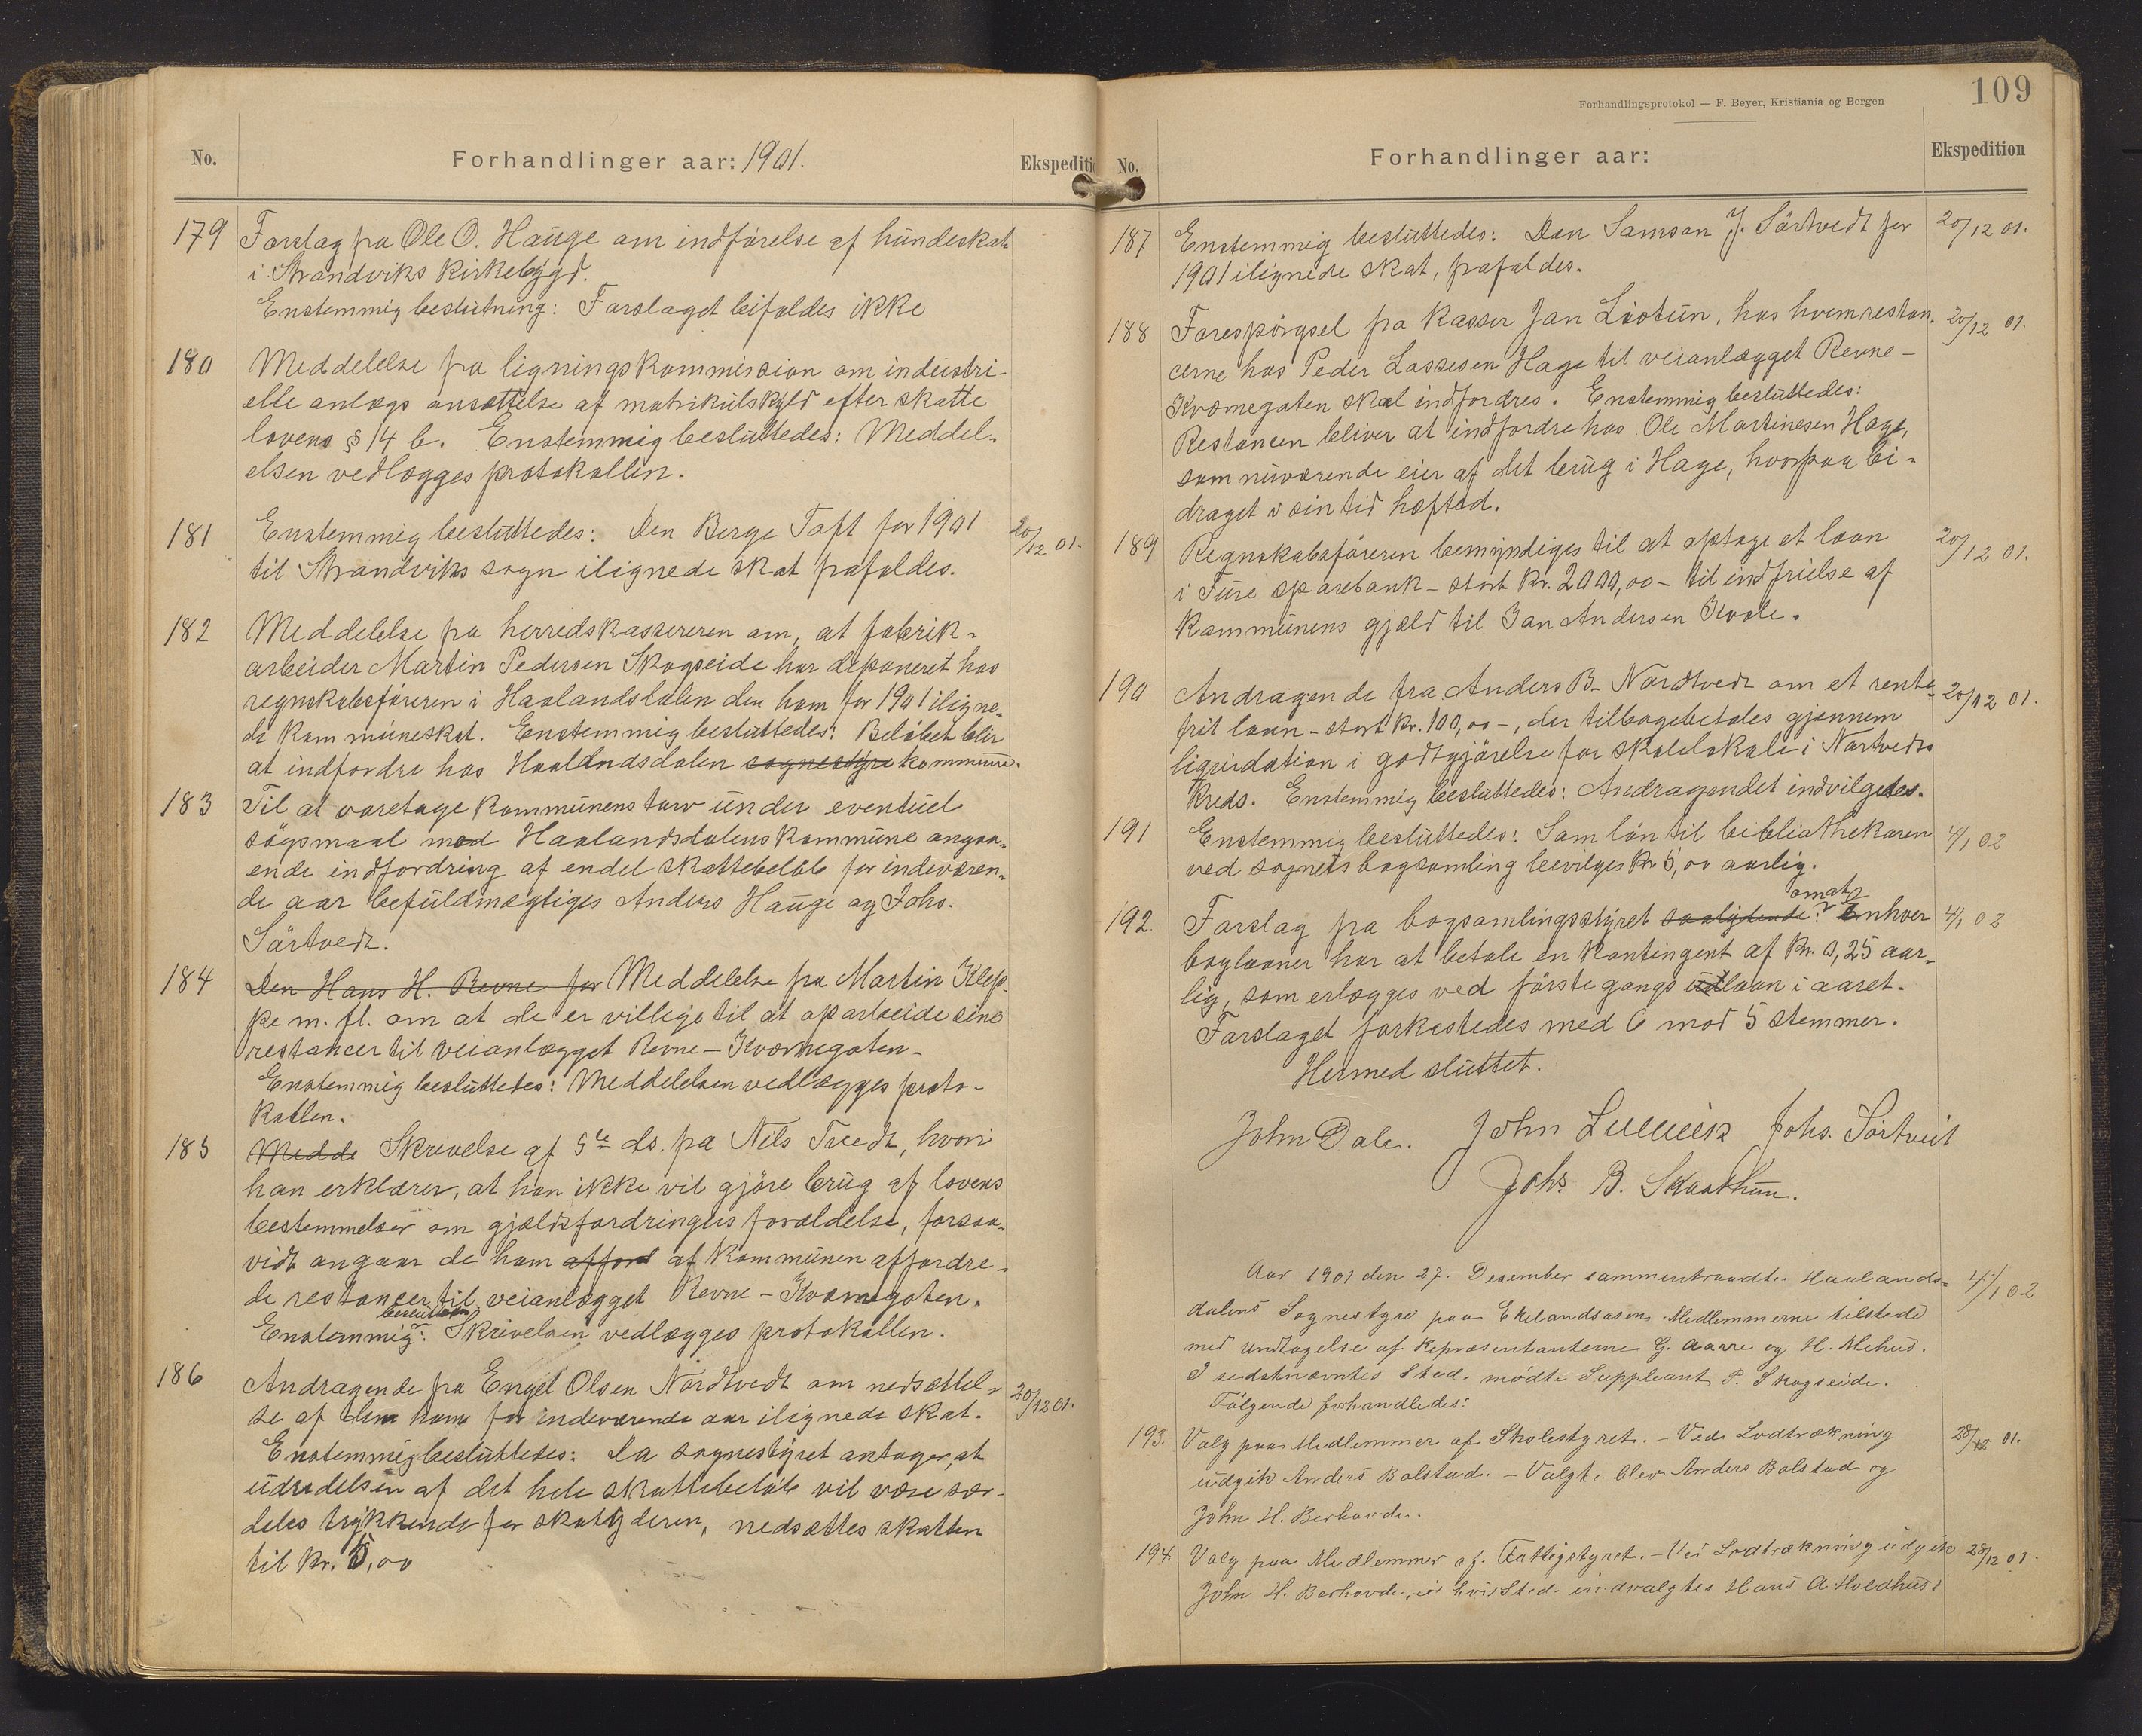 No.
Forhandlinger aar: 1901.
Ekspediti
179
Forslag fra Ole O. Hauge om indførelse af hundeskat
i Strandviks kirkebygd.
Enstemmig beslutning: Forslaget bifaldes ikke
180
Meddelelse fra ligningskommission om industri-
elle anlægs ansættelse af matrikulskyld efter skatte
lovens § 14 b. Enstemmig besluttedes: Meddel-
elsen vedlægges protokollen.
181
Enstemmig besluttedes: Den Berge Toft for 1901
til Strandviks sogn ilignede skat frafaldes.
20/12 01.
182
Meddelelse fra herredskassereren om, at fabrik-
arbeider Martin Pedersen Skogseide har deponeret hos
regnskabsføreren i Haalandsdalen den ham for 1901 iligne-
de kommuneskat. Enstemmig besluttedes: Beløbet blir
at indfordre hos Haalandsdalen sognestyre kommune.
183
Til at varetage kommunens tarv under eventuel
søgsmaal mod Haalandsdalens kommune angaa-
ende indfordring af endel skattebeløb for indeværen-
de aar befuldmægtiges Anders Hauge og Johs.
Sørtvedt.
184
Den Hans H. Revne for Meddelelse fra Martin Klep-
pe m. fl. om at de er villige til at oparbeide sine
restancer til veianlægget Revne - Kværnegaten.
Enstemmig besluttedes: Meddelelsen vedlægges proto-
kollen.
185
Medde Skrivelse af 5te ds. fra Nils Tvedt, hvori
han erklærer, at han ikke vil gjøre brug af lovens
bestemmelser om gjældsfordringers forældelse, forsaa-
vidt angaar de ham afford af kommunen affordre-
de restancer til veianlægget Revne - Kværnegaten.
besluttedes
Enstemmig: Skrivelsen vedlægges protokollen.
186
Andragende fra Engel Olsen Nordtvedt om nedsættel-
se af den ham for indeværende aar ilignede skat.
20/12 01.
Enstemmig besluttedes: Da sognestyret antager, at
udredelsen af det hele skattebeløb vil være sær-
deles trykkende for skatyderen, nedsættes skatten
til kr. 5,00
109
Forhandlingsprotokol — F. Beyer, Kristiania og Bergen
No.
Forhandlinger aar:
Ekspedition
187
Enstemmig besluttedes: Den Samson J. Sørtvedt for
20/12 01.
1901 ilignede skat, frafaldes.
188
Forespørgsel fra kasser Jan Liotun, hos hvem restan-
20/12 01.
cerne hos Peder Lassesen Hage til veianlægget Revne -
Kværnegaten skal indfordres. Enstemmig besluttedes:
Restancen bliver at indfordre hos Ole Martinesen Hage,
som nuværende eier af det brug i Hage, hvorpaa bi-
draget i sin tid hæfted.
189
Regnskabsføreren bemyndiges til at optage et laan
20/12 01.
i Fuse sparebank - stort kr. 2000,00 - til indfrielse af
kommunens gjæld til Jan Andersen Kvale.
190
Andragende fra Anders B. Nordtvedt om et rente-
20/12 01.
frit laan - stort kr. 100,00 -, der tilbagebetales gjennem
liquidation i godtgjørelse for skolelokale i Nortvedts
kreds. Enstemmig besluttedes: Andragendet indvilgedes.
191
Enstemmig besluttedes: Som løn til bibliothekaren
4/1 02
ved sognets bogsamling bevilges kr. 5,00 aarlig.
192.
omat
Forslag fra bogsamlingsstyret saalydende: Enhver
4/1 02
boglaaner har at betale en kontingent af kr. 0,25 aar-
lig, som erlægges ved første gangs udlaan i aaret.
Forslaget forkastedes med 6 mod 5 stemmer.
Hermed sluttet.
John Dale. John Johs. Sörtveit
Johs. B. Skaathun.
Aar 1901 den 27. Desember sammentraadte Haalands-
4/1 02
dalens Sognestyre paa Ekelandsosen. Medlemmerne tilstede
med undtagelse af Repræsentanterne G. Aarre og H. Mehus.
I sidstnævntes Sted mødte Suppleant P. Skogseide.
Følgende forhandledes:
193.
Valg paa Medlemmer af Skolestyret. - Ved Lodtrækning
28/12 01.
udgik Anders Bolstad. - Valgt blev Anders Bolstad og
John H. Berhovde.
194.
Valg paa Medlemmer af Fattigstyret. - Ved Lodtrækning udgik
28/12 01.
John H. Berhovde, i hvis Sted indvalgtes Hans A. Holdhus